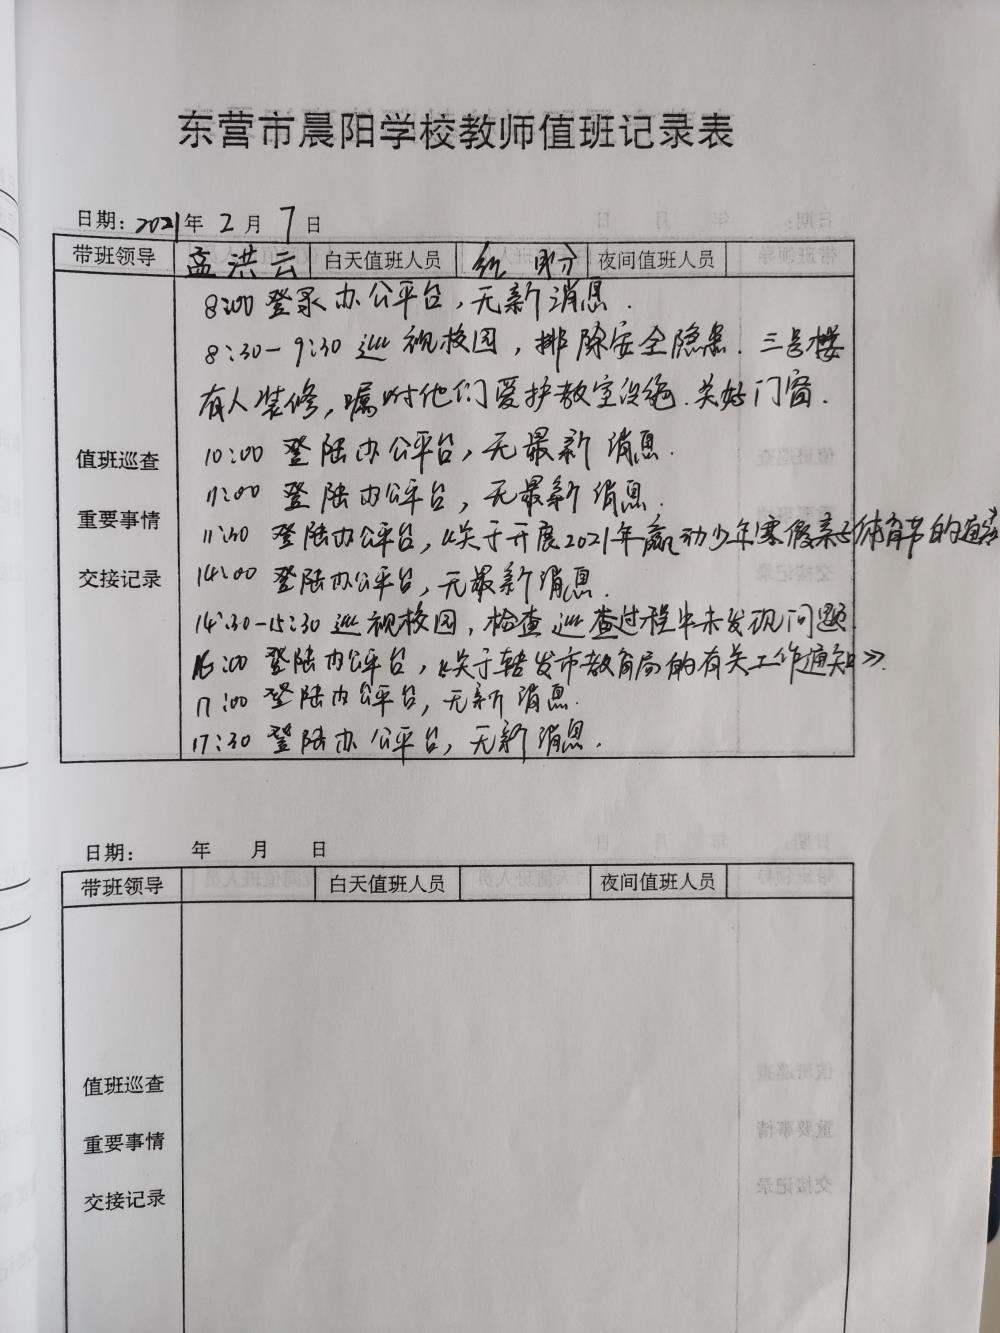 东营市晨阳学校教师值班记录表
日期：2021年 2 月 7 日
带班领导 孟洪云 白天值班人员 夜间值班人员
8:00 登录办公平台，无新消息.
8:30-9:30 巡视校园，排除安全隐患. 三号楼
有人装修，嘱咐他们爱护教室设施.关好门窗.
10:00 登陆办公平台，无最新消息.
11:00 登陆办公平台，无最新消息.
11:30 登陆办公平台，《关于开展2021年赢动少年寒假亲子体育节的通知
14:00 登陆办公平台，无最新消息.
14:30-15:30 巡视校园，检查巡查过程中未发现问题.
16:00 登陆办公平台，《关于转发市教育局的有关工作通知》.
17:00 登陆办公平台，无新消息.
17:30 登陆办公平台，无新消息.
值班巡查
重要事情
交接记录
日期： 年 月 日
带班领导 白天值班人员 夜间值班人员
值班巡查
重要事情
交接记录